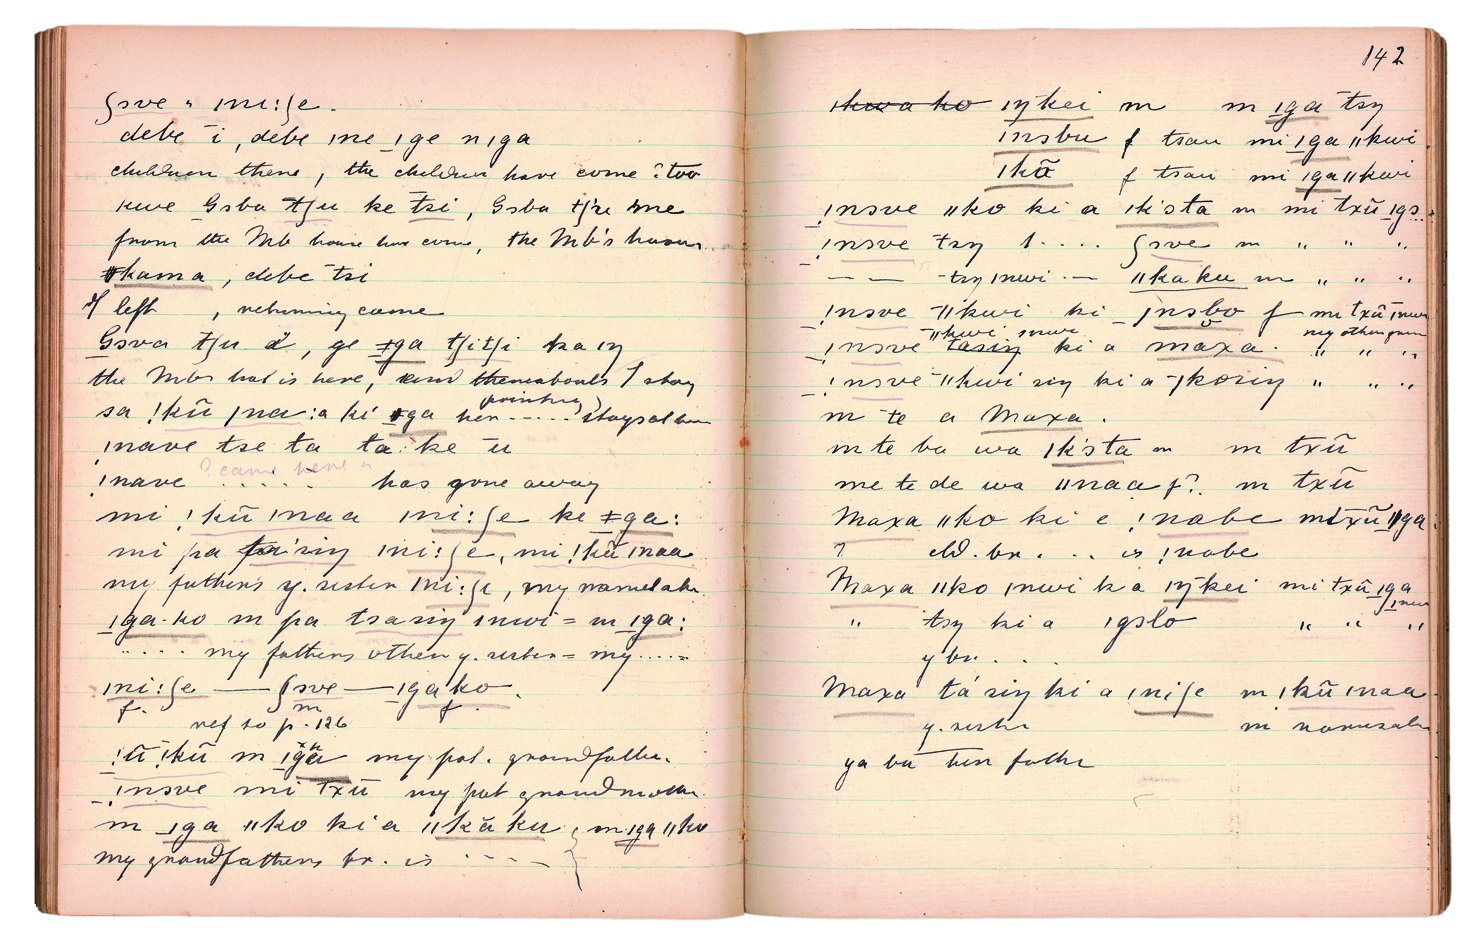 ʃsve " ını:ʃe.
debe ī, debe ıne ıge nıga
children there, the children have come ? too
kwe Gsba tʃu ke tsi, Gsba tʃu me
from the Mb house have come, the Mb's house
ǂkama, debe tsi
I left, returning come
Gsva tʃu , ge ǂga tʃitʃi ka ıŋ
the Mbs hut is here, and thereabouts I stay
sa !kũ ı na:a ki ǂga her - - - - stays at
(pointing)
ınave tse ta ta ke ū
? came here
ınave . . . . . has gone away
mi !kũ ınaa ını:ʃe ke ǂga:
mi pa tsa'siŋ ını:ʃe, mi !kũ ınaa
my fathers y. sister ını:ʃe, my namesake
ıga-ko m pa tsasiŋ ınwi = m ıga:
. . . . my fathers other y. sister = my . . . . =
ını:ʃe — ʃsve — ıgako.
f. m f.
ref to p. 126
!ũ !kũ m ıgã my pat. grandfather.
!nsve mi txũ my pat grandmother
m ıga ǁko ki a ǁkãku m ıga ǁko
my grandfathers br. is - - - -
142
ıkwa ko ıŋkei m m ıga tsŋ
ınsbu f tsau mi ıga ǁkwi
ıkã f tsau mi ıga ǁkwi
!nsve ǁko ki a ık'sta m mi txũ ıgs
!nsve tsŋ . . . . ʃsve m " " "
— — tsŋ ınwi — ǁkaku m " " "
!nsve ǁkwi ki ȷnsbo f mi txũ ınwi
ǁkwi ınwi my other gm
!nsve tasiŋ ki a maxa. " " "
!nsve ǁkwi siŋ ki a ȷkosiŋ " " "
m te a Maxa.
m te ba wa ık'sta m m txũ
me te de wa ǁnaa f?. m txũ
Maxa ǁko ki e !nabe mi txũ ǁga
? eld. br. . . is !nabe
Maxa ǁko ınwi k a ıŋkei mi txũ ıga
ınwi
" tsŋ ki a ıgslo " " "
y br. . .
Maxa tá siŋ ki a ınıʃe m ıkũ ınaa
y. sister m namesake
ya ba her father